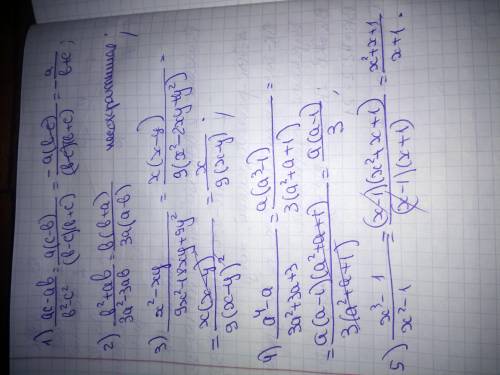 1) (ac-ab)/(b²-c²) = a(c-b)/((b-c)(b+c)) = -a(b-c)/((b-c)(b+c)) = -a/(b+c);
2) (b²+ab)/(3a²-3ab) = b(b+a)/(3a(a-b))
3) (x²-xy)/(9x²-18xy+9y²) = x(x-y)/(9(x²-2xy+y²)) =
= x(x-y)/(9(x-y)²) = x/(9(x-y));
4) (a⁴-a)/(3a²+3a+3) = a(a³-1)/(3(a²+a+1)) =
= a(a-1)(a²+a+1)/(3(a²+a+1)) = a(a-1)/3;
5) (x³-1)/(x²-1) = (x-1)(x²+x+1)/((x-1)(x+1)) = (x²+x+1)/(x+1).